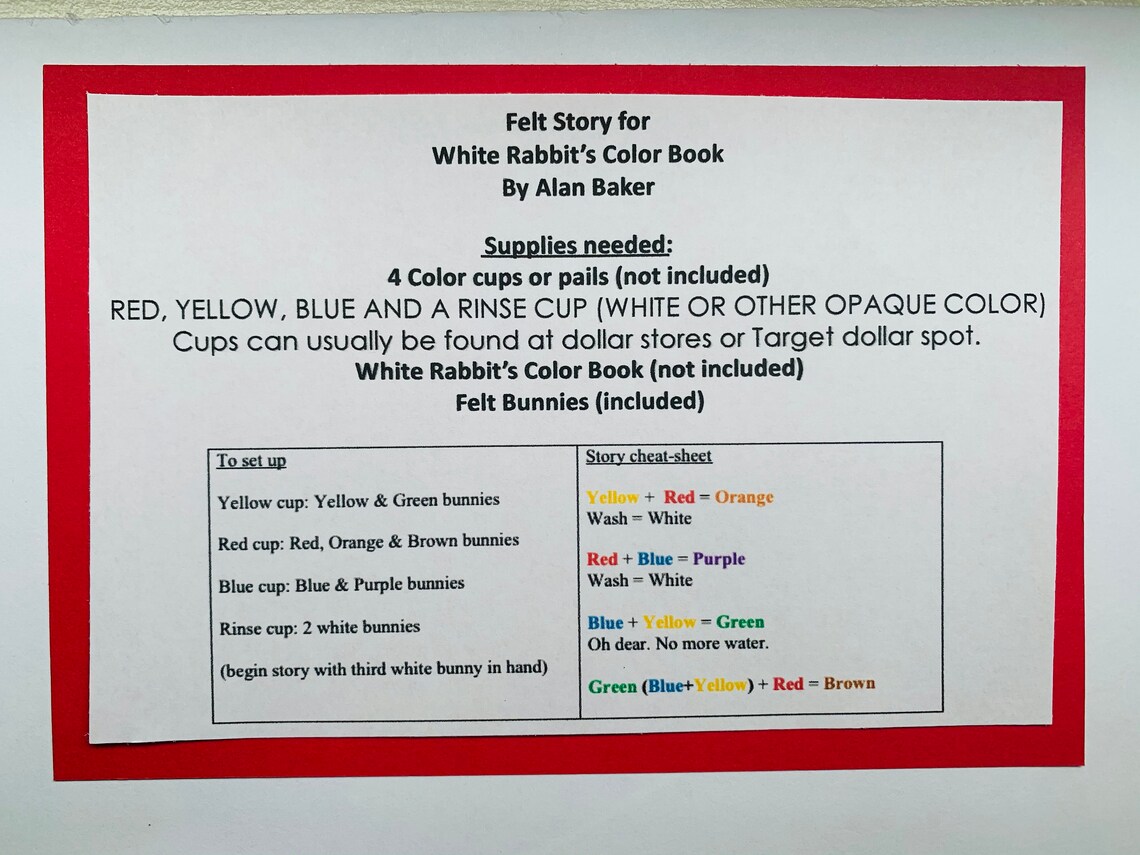 Felt Story for
White Rabbit's Color Book
By Alan Baker
Supplies needed:
4 Color cups or pails (not included)
RED, YELLOW, BLUE AND A RINSE CUP (WHITE OR OTHER OPAQUE COLOR)
Cups can usually be found at dollar stores or Target dollar spot.
White Rabbit's Color Book (not included)
Felt Bunnies (included)
To set up
Yellow cup: Yellow & Green bunnies
Red cup: Red, Orange & Brown bunnies
Blue cup: Blue & Purple bunnies
Rinse cup: 2 white bunnies
(begin story with third white bunny in hand)
Story cheat-sheet
Yellow + Red = Orange
Wash = White
Red + Blue = Purple
Wash = White
Blue + Yellow = Green
Oh dear. No more water.
Green (Blue+Yellow) + Red = Brown